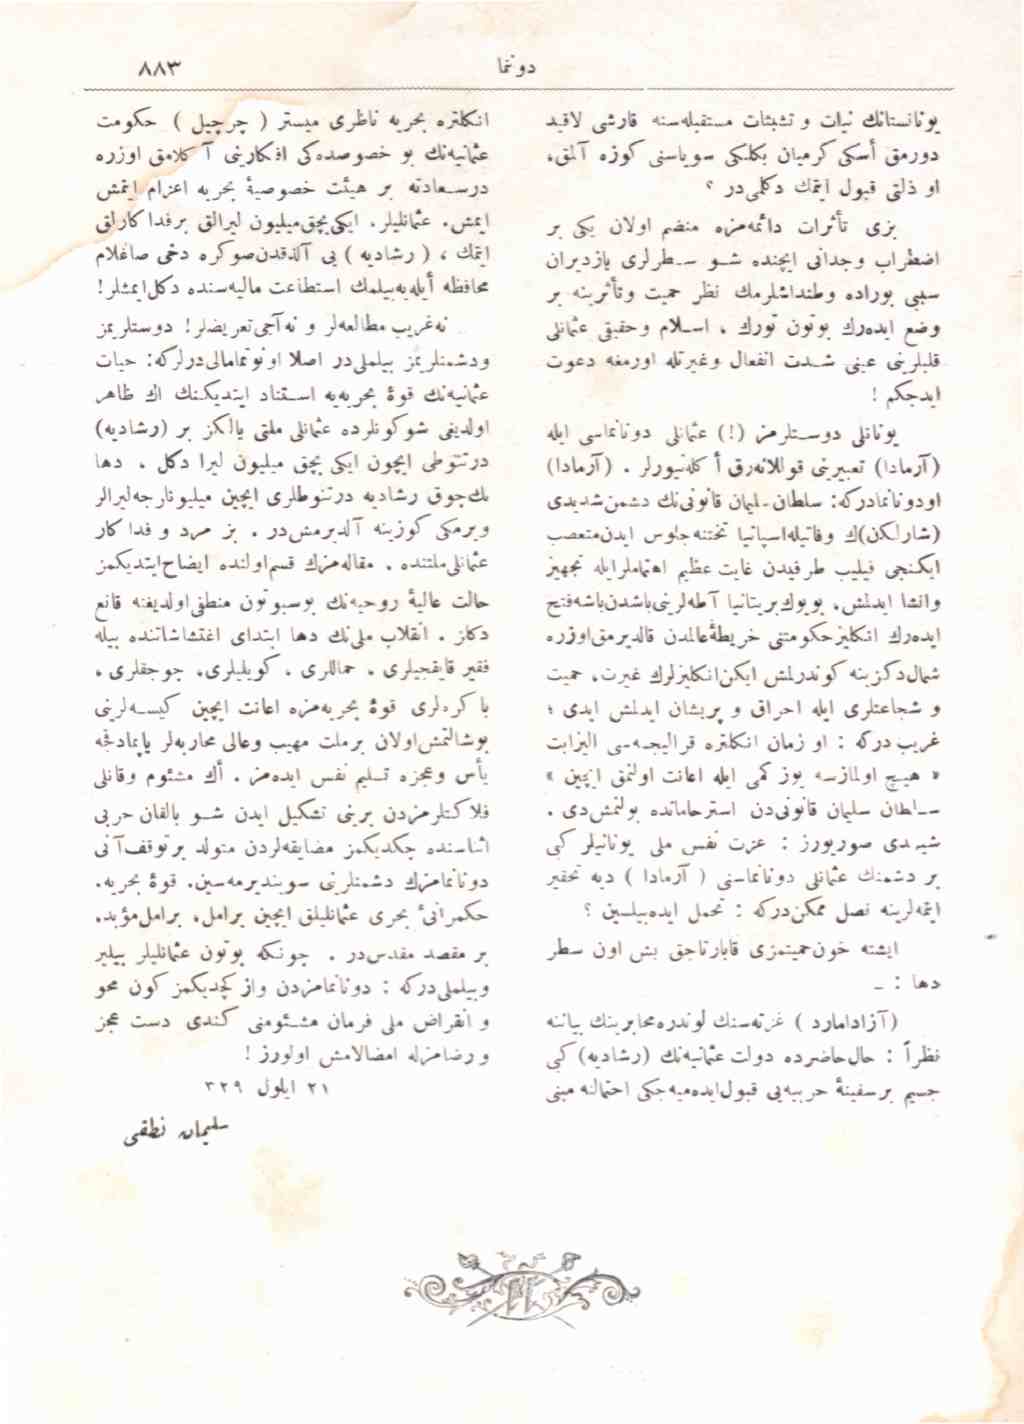 دوننما
٨٨٣
يونانستانك نيات و تشبثات مستقبله‌سنه قارشى لاقيد
دورمق أسكى كرميان بكلكى سوياسنى كوزه آلمق،
او ذلتى قبول ايتمك دكلمى‌در ؟
بزى تأثرات دائمه‌مزه منضم اولان يكى بر
اضطراب وجدانى ايچنده شو سطرلرى يازديران
سببى بوراده وطنداشلرمك نظر حميت وتأثرينه بر
وضع ايده‌رك بوتون تورك ، اسلام وحقيقى عثمانلى
قلبلرينى عينى شدت انفعال وغيرتله اورمغه دعوت
ايده‌جكم !
يونانلى دوستلرمز (!) عثمانلى دونانماسى ايله
(آرمادا) تعبيرينى قوللانه‌رق أكله‌نيورلر . (آرمادا)
اودونانمادركه: سلطان سليمان قانونى‌نك دشمن شديدى
(شارلكن)ك وفاتيله اسپانيا تختنه جلوس ايدن متعصب
ايكنجى فيليپ طرفيدن غايت عظيم اهتماملرايله تجهيز
وانشا ايدلمش، بويوك بريتانيا آطه‌لرينى باشدن باشه فتح
ايده‌رك انكليز حكومتنى خريطۀ عالمدن قالديرمق اوزره
شمال دكزينه كوندرلمش ايكن انكليزلرك غيرت، حميت
و شجاعتلرى ايله احراق و پريشان ايدلمش ايدى ؛
غريب دركه : او زمان انكلتره قراليچه‌سى اليزابت
« هيچ اولمازسه يوز كمى ايله اعانت اولنمق ايچين »
سلطان سليمان قانونى‌دن استرحاماتده بولنمش‌دى .
شيمدى صوريورز : عزت نفس ملى يونانيلر كبى
بر دشمنك عثمانلى دونانماسنى ( آرمادا ) ديه تحقير
ايتمه‌لرينه نصل ممكن‌دركه : تحمل ايده‌بيلسين ؟
ايشته خون حميتمزى قابارتاجق بش اون سطر
دها : ـ
(آزادامارد ) غزته‌سنك لوندره مخابرينك بياننه
نظراً : حال حاضرده دولت عثمانيه‌نك (رشاديه) كبى
جسيم بر سفينۀ حربيه‌يى قبول ايده‌ميه‌جكى احتمالنه مبنى
انكلتره بحريه ناظرى ميستر ( چرچيل ) حكومت
عثمانيه‌نك بو خصوصده‌كى افكارينى آكلامق اوزره
درسعادته بر هيئت خصوصيۀ بحريه اعزام ايتمش
ايمش. عثمانليلر. ايكى بچق ميليون ليرالق برفدا كارلق
ايتمك ، ( رشاديه ) يى آلدقدن صوكره دخى صاغلام
محافظه أيله‌يه‌بيلمك استطاعت ماليه‌سنده دكل ايمشلر!
نه غريب مطالعه‌لر و نه آجى تعريضلر! دوستلريمز
ودشمنلريمز بيلملى‌در اصلا اونوتمامالى‌درلركه: حيات
عثمانيه‌نك قوۀ بحريه‌يه استناد ايتديكنك اك ظاهر
اولديغى شوكونلرده عثمانلى ملتى يالكز بر (رشاديه)
درتنوطى ايچون ايكى بچق ميليون ليرا دكل ، دها
پك چوق رشاديه درتنوطلرى ايچين ميليونلرجه ليرالر
ويرمكى كوزينه آلديرمش‌در . بز مرد و فدا كار
عثمانلى ملتنده . مقاله‌مزك قسم اولنده ايضاح ايتديكمز
حالت عاليۀ روحيه‌نك بوسبوتون منطفى اولديغنه قانع
دكلز . انقلاب ملى‌نك دها ابتداى اغتشاشاتنده بيله
فقير قايقجيلرى . حماللرى ، كويليلرى، چوجقلرى ،
باكره‌لرى قوۀ بحريه‌مزه اعانت ايچين كيسه‌لرينى
بوشالتمش اولان برملت مهيب وعالى محاربه‌لر ياپمادقجه
يأس وعجزه تسليم نفس ايده‌مز . أك مشئوم وقانلى
فلاكتلرمزدن برينى تشكيل ايدن شو بالقان حربى
اثناسنده چكديكمز مضايقه‌لردن متولد برتوقف آنى
دونانمامزك دشمنلرينى سوينديرمه‌سين. قوۀ بحريه.
حكمرانئ بحرى عثمانليلق ايچين برامل، برامل مؤيد،
بر مقصد مقدس‌در . چونكه بوتون عثمانليلر بيلير
وبيلملى‌دركه : دونانمامزدن واز كچديكمز كون محو
و انقراض ملى فرمان مشئومنى كندى دست عجز
و رضامزله امضالامش اولورز !
٢١ ايلول ٣٢٩
سليمان نطقى